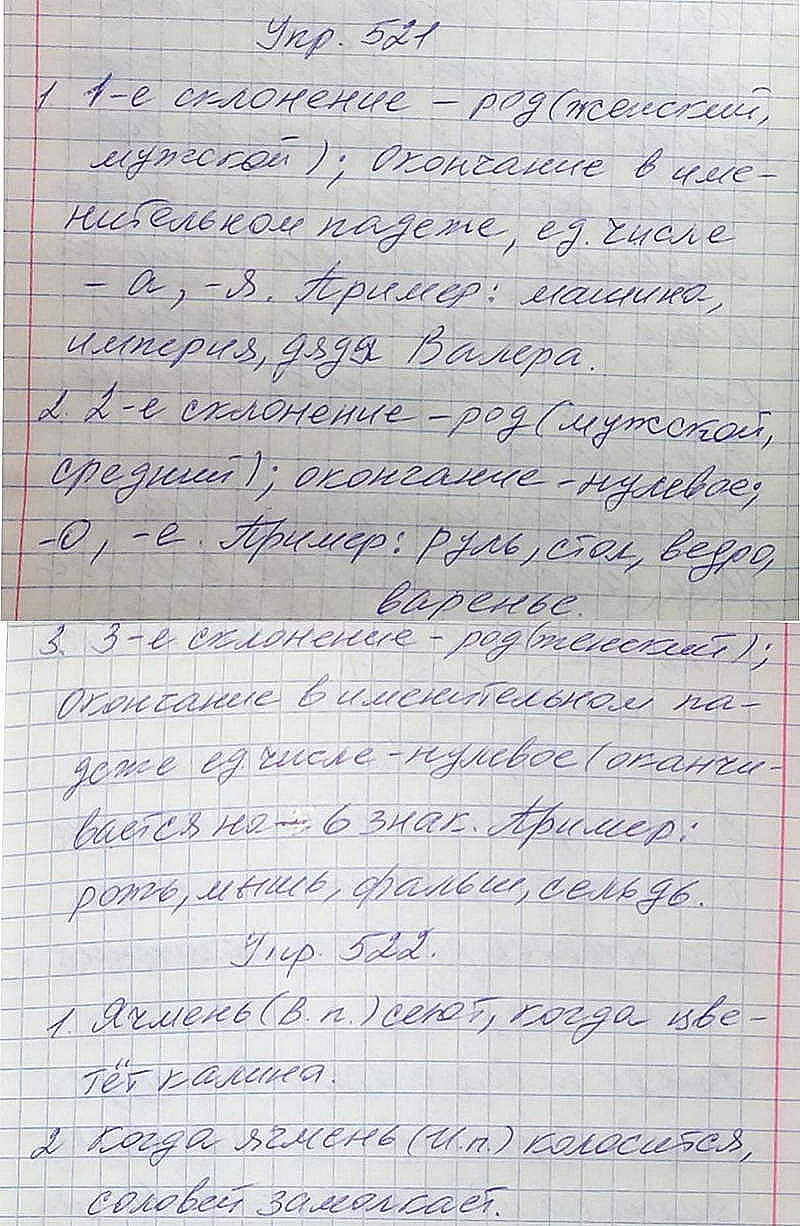 Упр. 521
1 1-е склонение - род (женский,
мужской); Окончание в име-
нительном падеже, ед. числе
- а, -я. Пример: машина,
империя, дядя Валера.
2. 2-е склонение - род (мужской,
средний); окончание - нулевое;
-о, -е. Пример: руль, стол, ведро,
варенье.
3. 3-е склонение - род (женский);
Окончание в именительном па-
деже ед. числе - нулевое (оканчи-
вается на - ь знак. Пример:
рожь, мышь, фальш, сельдь.
Упр. 522.
1. Ячмень (В. п.) сеют, когда цве-
тёт калина.
2 Когда ячмень (И.п.) колосится,
соловей замолкает.